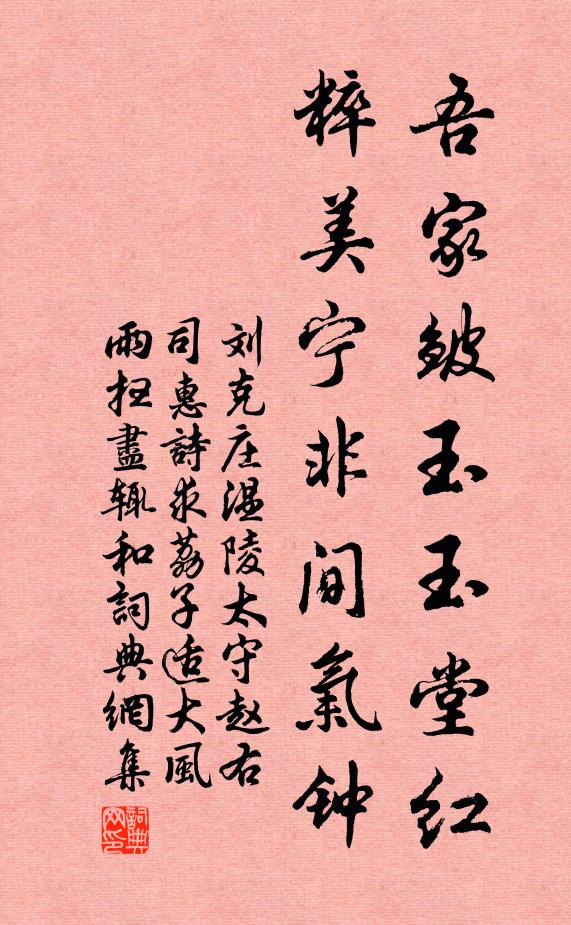 吾家皺玉玉堂红
粹美宁非间氣钟
刘克庄温陵太守赵右
司惠詩求荔子适大風
雨扫盡辄和詞典網集
詞典网印